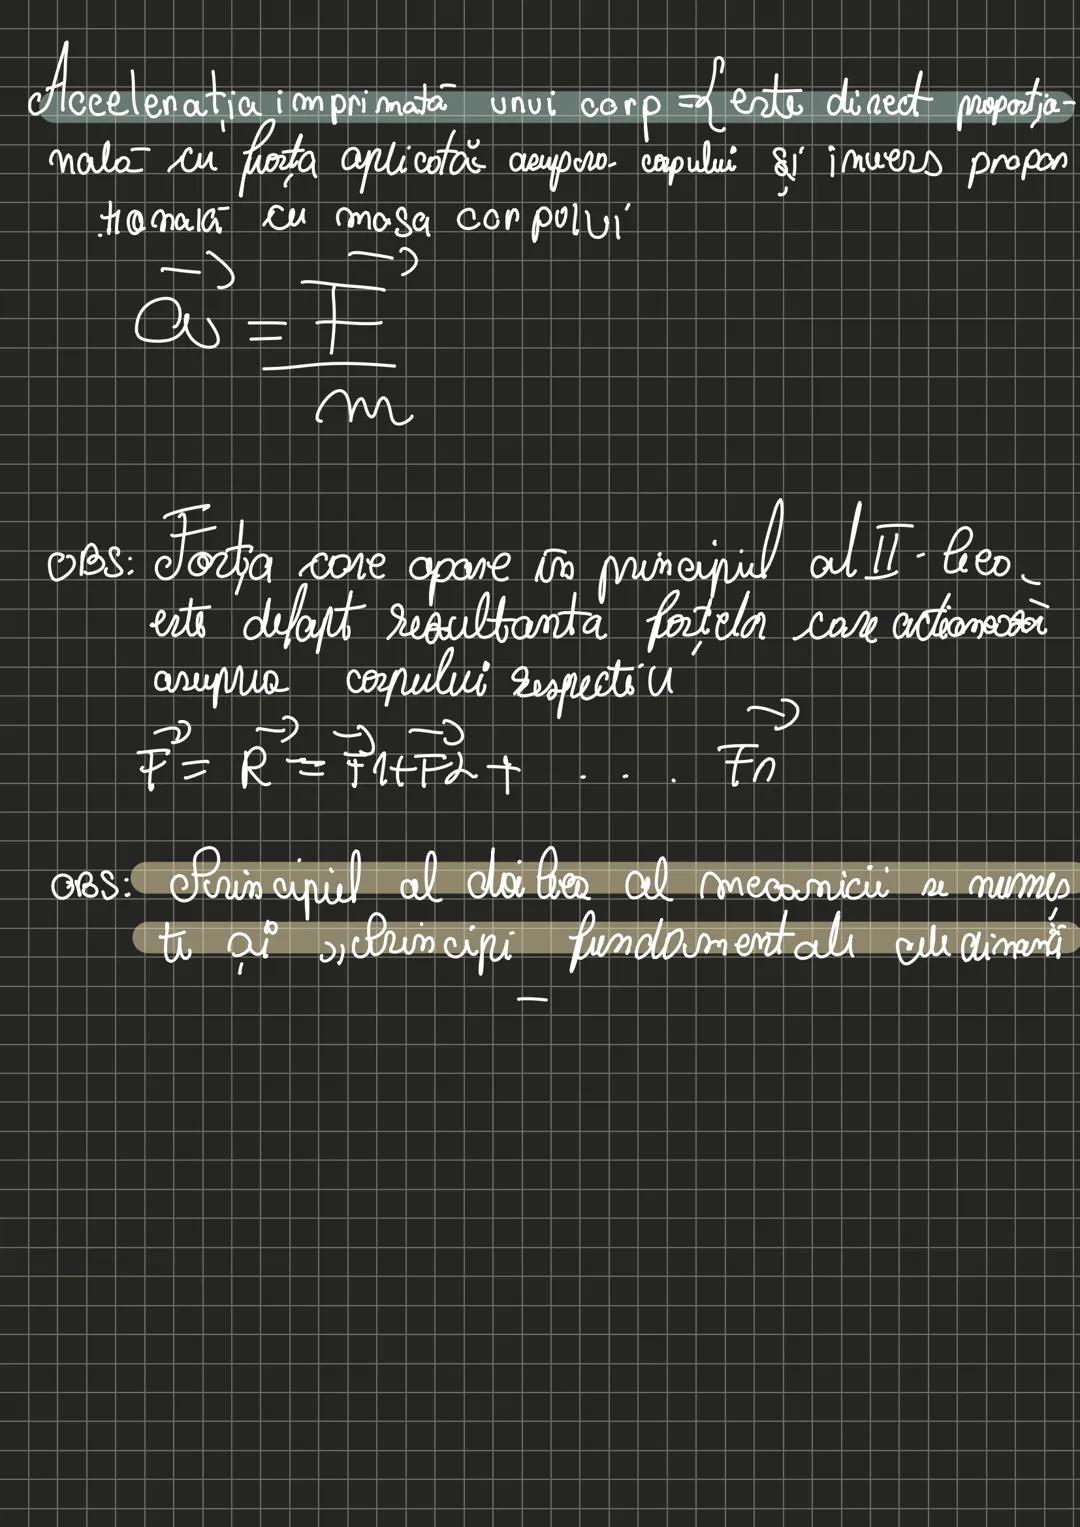 Accelerația imprimată unui corp ={ este direct proporția-
nală cu forța aplicată asupra corpului și invers propor
tională cu masa corpului
a = F
m
OBS: Forța care apare în principiul al II-lea
este defapt rezultanta forțelor care actionează
asupra corpului respectiv
F = R = F1+F2+ . . . . Fn
OBS: Principiul al doilea al mecanicii se numeș
te și ,,Principi fundamentale ale